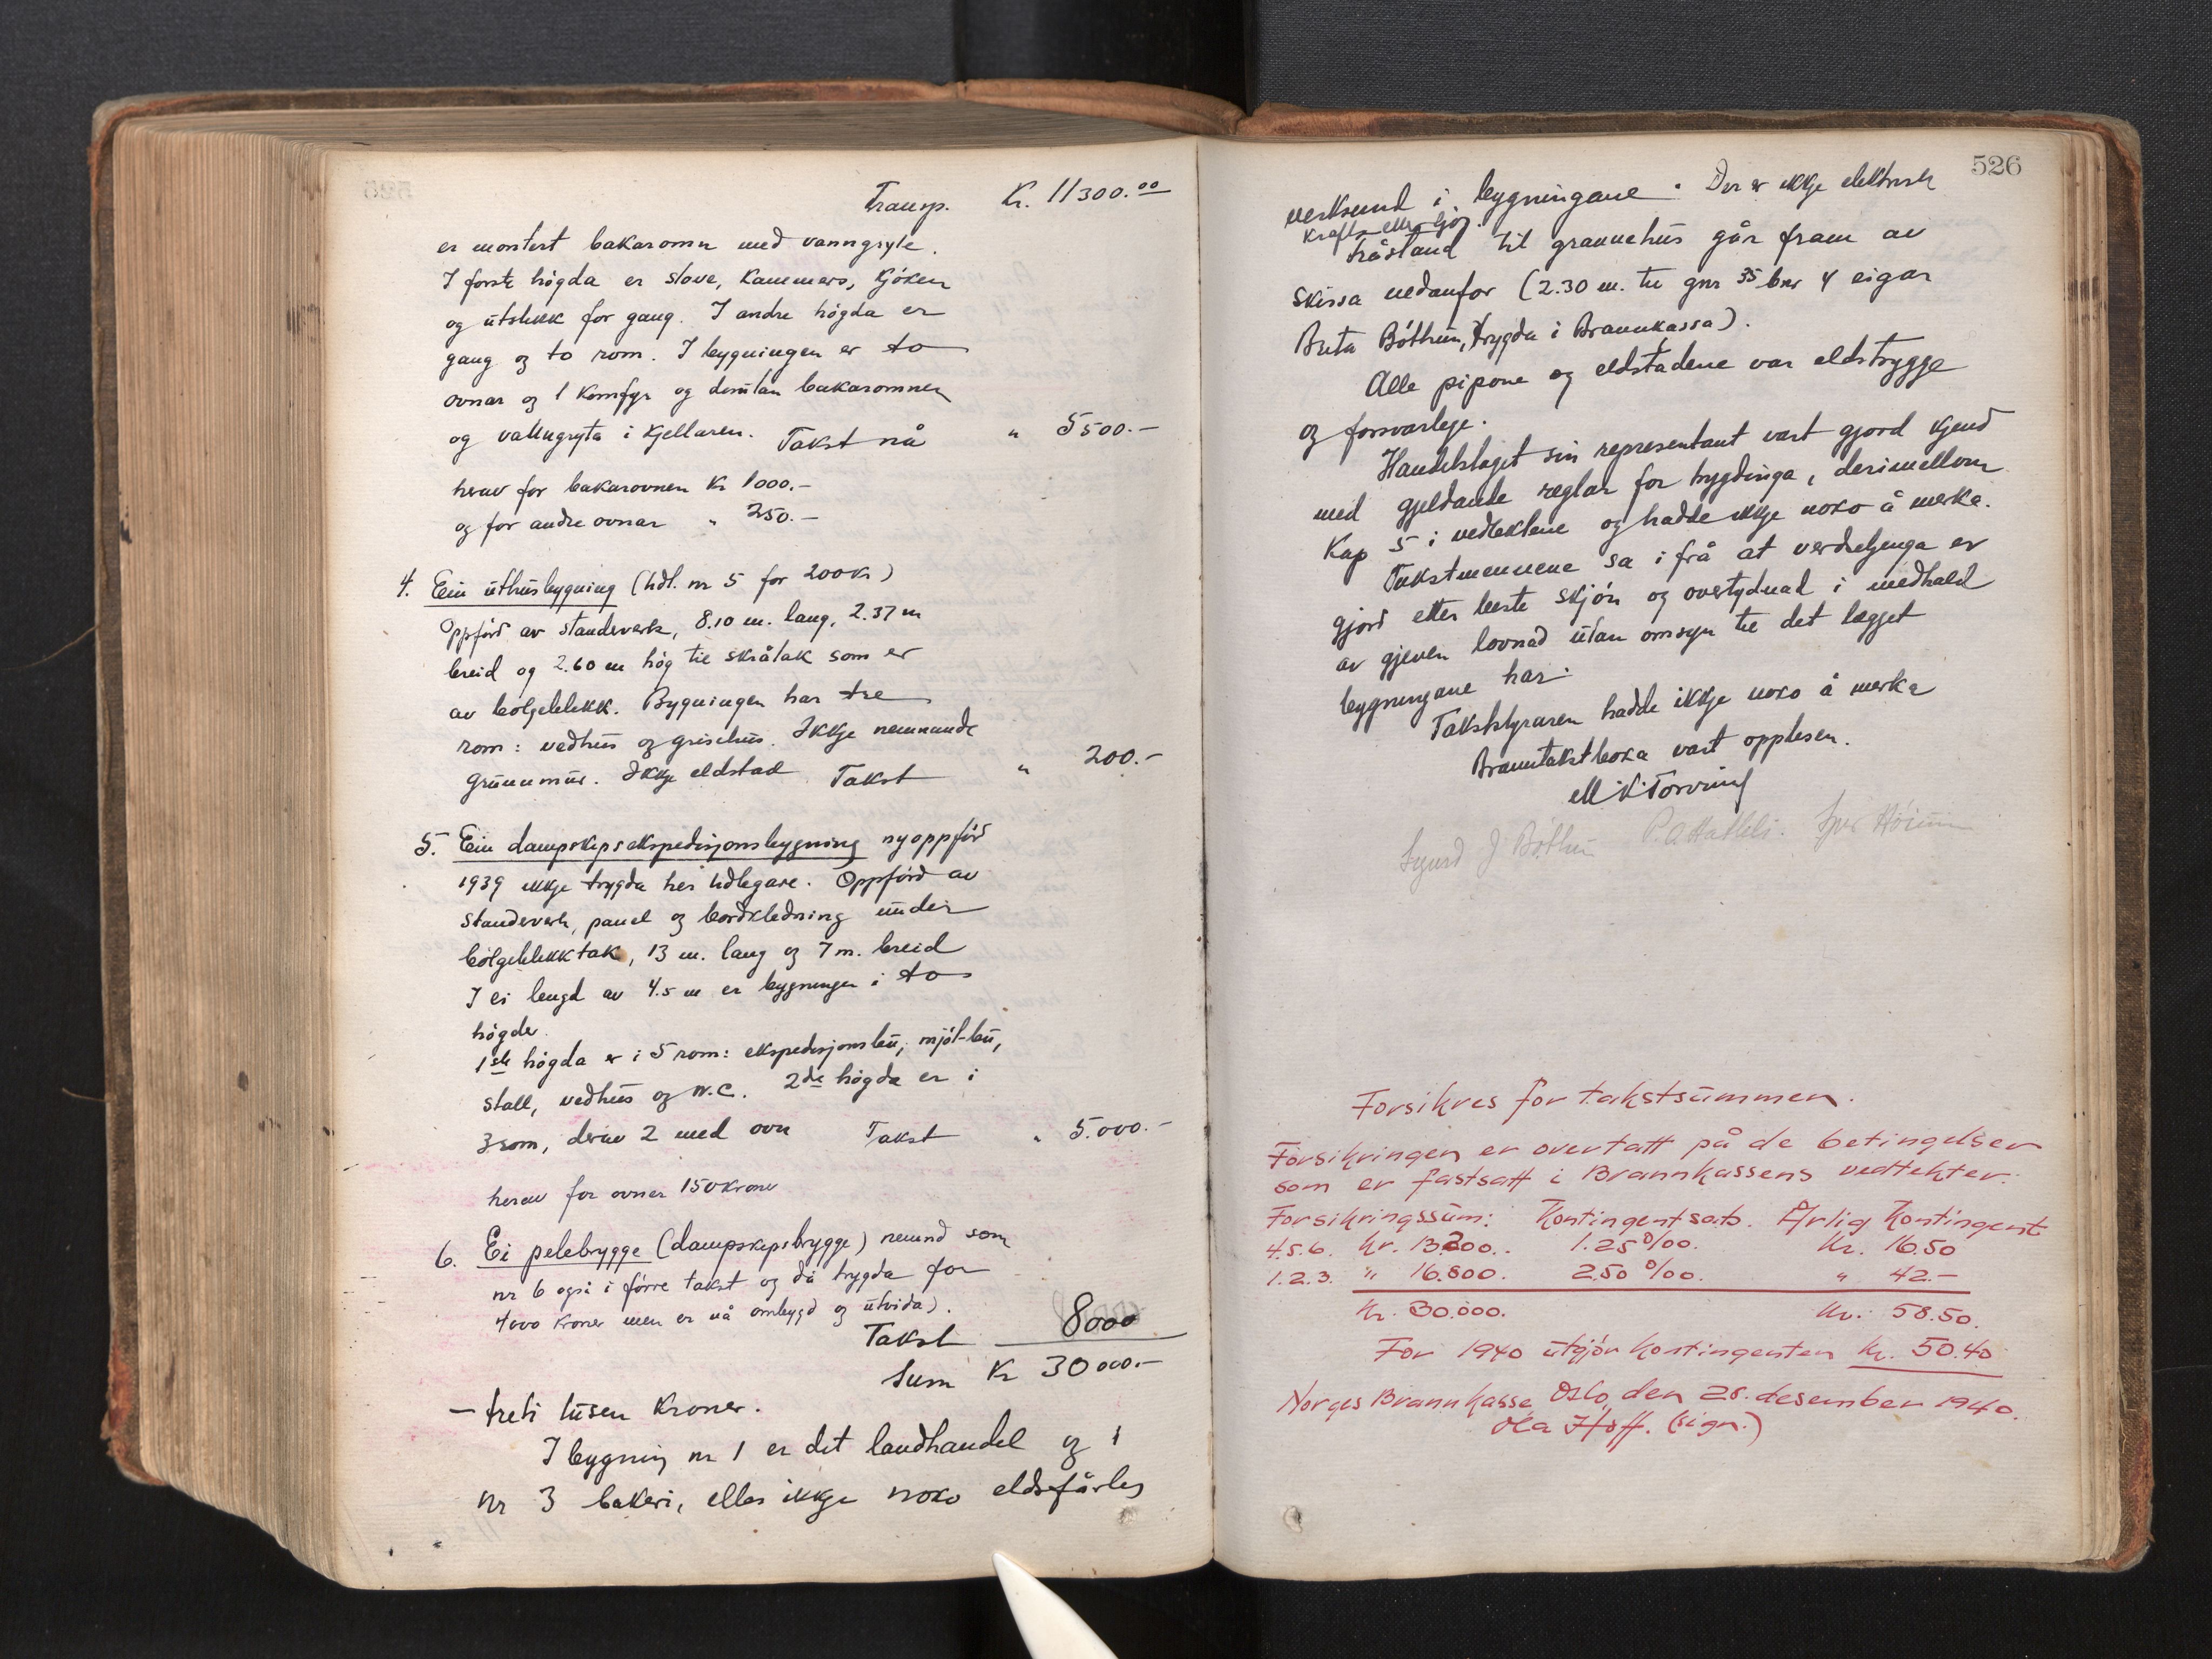 Transp. Kr. 11300.00
er montert bakaromn med vanngryte.
I forste högda er stove, kammers, kjöken
og utstikk for gang. I andre högda er
gang og to rom. I bygningen er to
ovnar og 1 komfyr og dessutan bakaromnen
og vanngryta i kjellaren. Takst nå " 5500.-
herav for bakarovnen Kr 1000.-
og for andre ovnar " 250.-
4. Ein uthusbygning (tidl. nr 5 for 200 kr)
Oppförd av standeverk, 8.10 m. lang, 2.37 m
breid og 2.60 m hög til skråtak som er
av bölgeblekk. Bygningen har tre
rom: vedhus og grisehus. Ikkje nemnande
grunnmur. Ikkje eldstad Takst " 200.-
5. Ein dampskipsekspedisjonsbygning nyoppförd
1939 ikkje trygda her tidlegare. Oppförd av
standeverk, panel og bordkledning under
bölgeblekktak, 13 m. lang og 7 m. breid
I ei lengd av 4.5 m er bygningen i to
högder.
1ste högda er i 5 rom: ekspedisjonsbu, mjöl-bu,
stall, vedhus og W.C. 2dre högda er i
3 rom, derav 2 med ovn Takst " 5.000.-
herav for ovner 150 kroner
6. Ei pelebrygge (dampskipsbrygge) nemnd som
nr 6 ogsi i förre takst og då trygda for
4000 kroner men er nå ombygd og utvida).
Takst 8000
Sum Kr 30000.-
- treti tusen kroner.
I bygning nr 1 er det landhandel og i
nr 3 bakeri, elles ikkje noko eldsfårleg
526
verksemd i bygningane. Der er ikkje elektrisk
kraft eller ljos.
Fråstand til grannehus går fram av
skissa nedanfor (2.30 m. til gnr 35 bnr 4 eigar
Brita Böthun, trygda i Brannkassa).
Alle pipone og eldstadene var eldstrygge
og forsvarlege.
Handelslaget sin representant vart gjord kjend
med gjeldande reglar for trygdinga, derimellom
Kap 5 i vedtektene og hadde ikkje noko å merka.
Takstmennene sa i frå at verdsetjinga er
gjord etter beste skjön og overtydnad i medhald
av gjeven lovnad utan omsyn til det lægjet
bygningane har.
Takststyraren hadde ikkje noko å merka
Branntakstboka vart opplesen.
M K Torvund
Sigurd J Böthun P.O. Hatleli. Sjur Höium
Forsikres for takstsummen.
Forsikringen er overtatt på de betingelser
som er fastsatt i Brannkassens vedtekter.
Forsikringssum: Kontingentsats. Årlig Kontingent
4.5.6. kr. 13.200.. 1.25 o/oo. Kr. 16.50
1.2.3. " 16.800. 2.50 o/oo. " 42.-
Kr. 30.000. Kr. 58.50.
For 1940 utgjör kontingenten kr. 50.40
Norges Brannkasse Oslo, den 28. desember 1940.
Ola Hoff. (sign.)